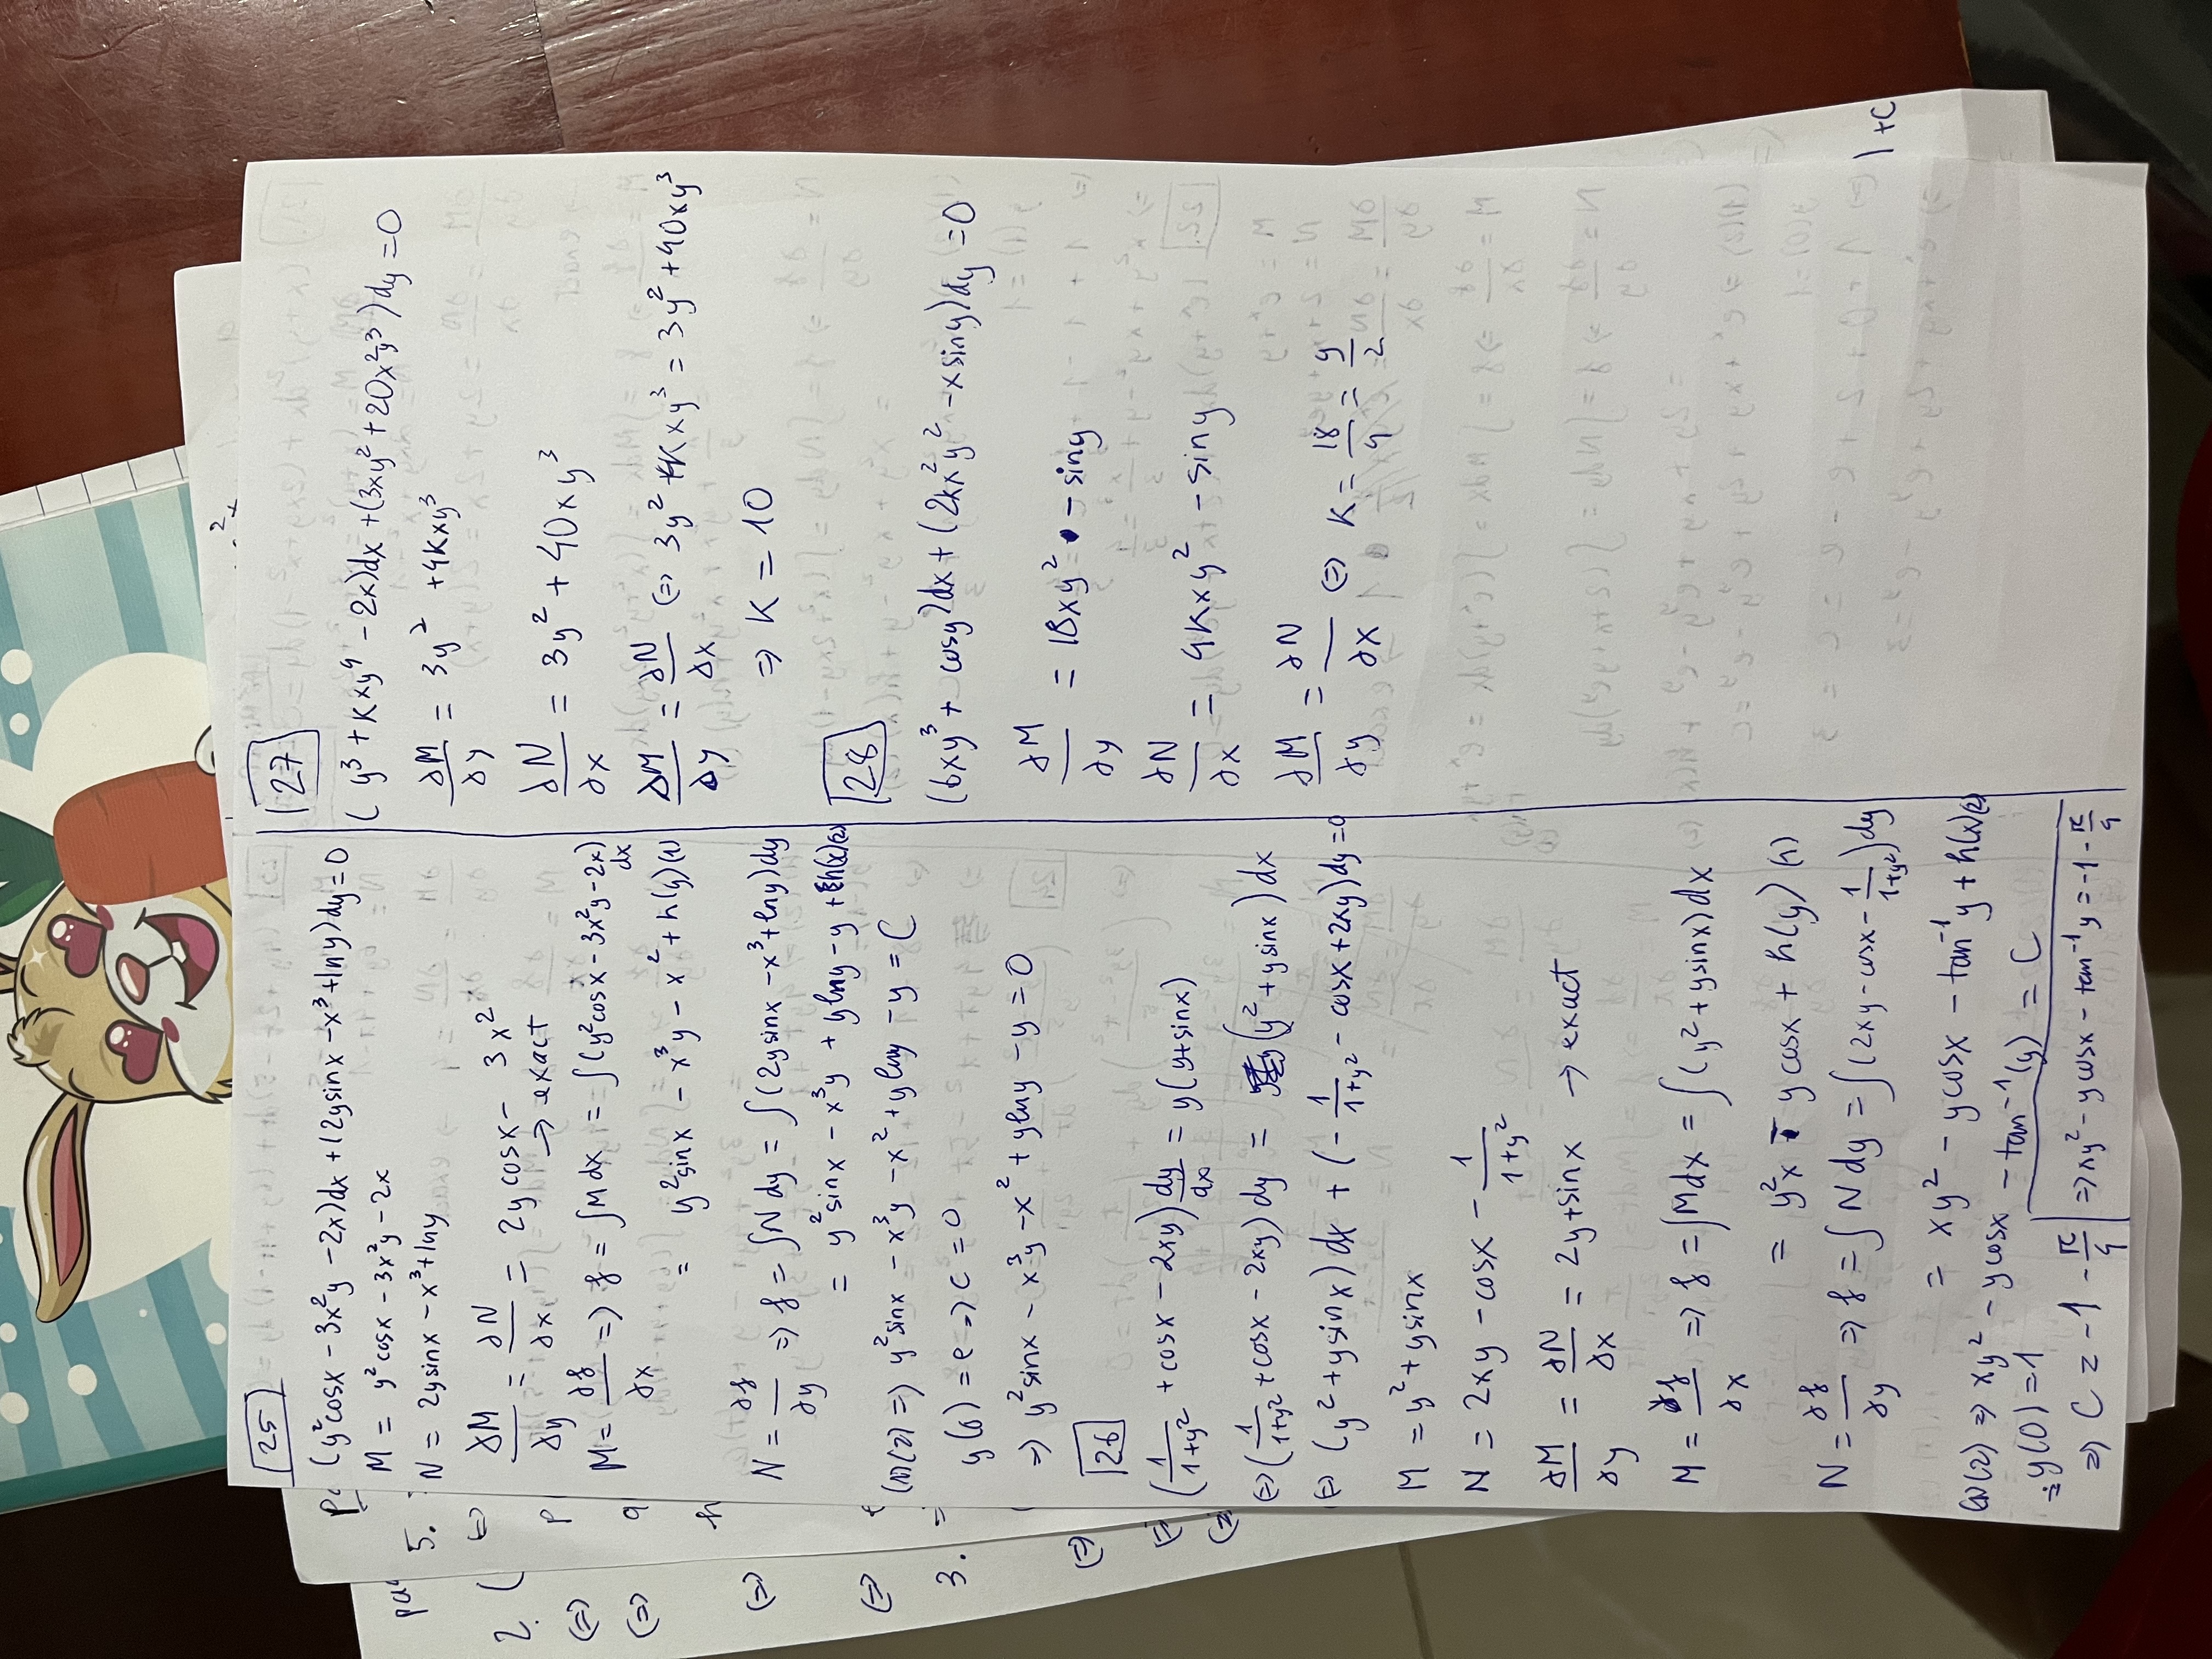 25
(y²cosx - 3x²y - 2x)dx + (2ysinx - x³ + lny)dy = 0
M = y²cosx - 3x²y - 2x
N = 2ysinx - x³ + lny
∂M/∂y = ∂N/∂x = 2ycosx - 3x²
→ exact
M = ∂f/∂x => f = ∫Mdx = ∫(y²cosx - 3x²y - 2x)
dx
= y²sinx - x³y - x² + h(y) (1)
N = ∂f/∂y => f = ∫N dy = ∫(2ysinx - x³ + lny)dy
= y²sinx - x³y + ylny - y + h(x) (2)
(1)(2) => y²sinx - x³y - x² + ylny - y = C
y(0) = e => c = 0
=> y²sinx - x³y - x² + ylny - y = 0
26
(1/(1+y²) + cosx - 2xy) dy/dx = y(y+sinx)
(=> (1/(1+y²) + cosx - 2xy) dy = (y² + ysinx) dx
(=> (y² + ysinx) dx + (-1/(1+y²) - cosx + 2xy)dy = 0
M = y² + ysinx
N = 2xy - cosx - 1/(1+y²)
∂M/∂y = ∂N/∂x = 2y + sinx → exact
M = ∂f/∂x => f = ∫Mdx = ∫(y² + ysinx)dx
= y²x - ycosx + h(y) (1)
N = ∂f/∂y => f = ∫N dy = ∫(2xy - cosx - 1/(1+y²))dy
= xy² - ycosx - tan⁻¹y + h(x) (2)
(1)(2) => xy² - ycosx - tan⁻¹(y) = C
y(0) = 1
=> C = -1 - π/4
=> xy² - ycosx - tan⁻¹y = -1 - π/4
27
(y³ + kxy⁴ - 2x)dx + (3xy² + 20x²y³)dy = 0
∂M/∂y = 3y² + 4kxy³
∂N/∂x = 3y² + 40xy³
∂M/∂y = ∂N/∂x (=> 3y² + 4kxy³ = 3y² + 40xy³
=> K = 10
28
(6xy³ + cosy)dx + (2kx²y² - xsiny)dy = 0
∂M/∂y = 18xy² - siny
∂N/∂x = 4kxy² - siny
∂M/∂y = ∂N/∂x (=> K = 18/4 = 9/2
5.
2. (
3.
1 + C